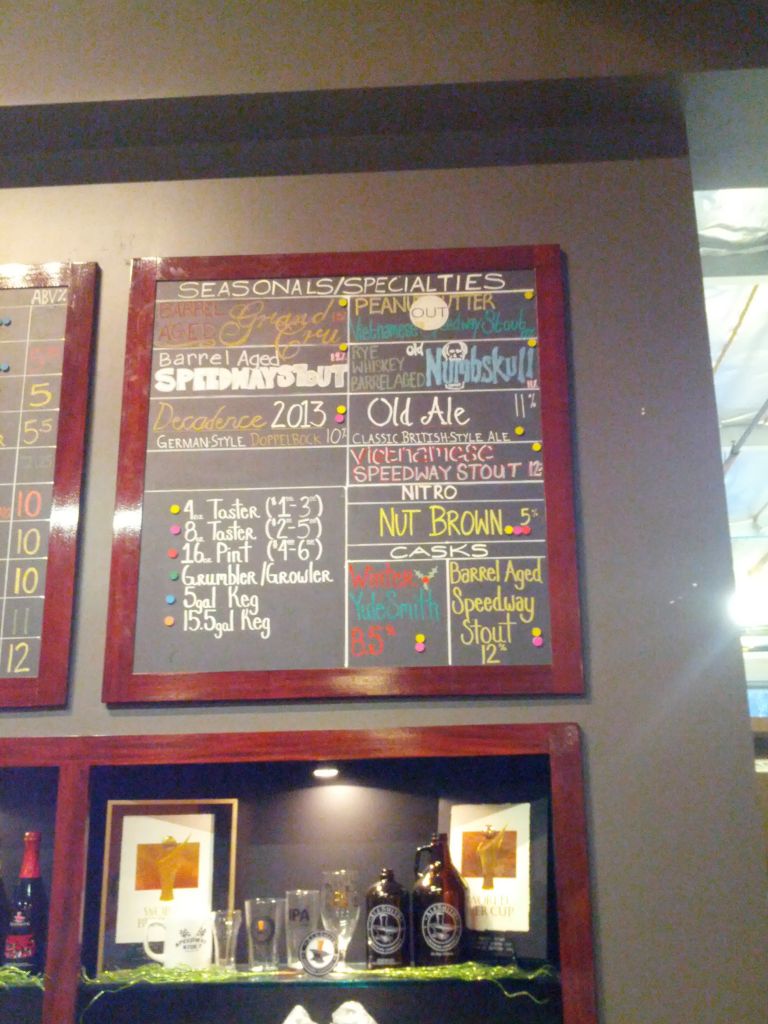 ABV%
5
5.5
10
10
10
11
12
SEASONALS/SPECIALTIES
BARREL AGED Grand Cru
Barrel Aged
SPEEDWAY STOUT
Decadence 2013
GERMAN-STYLE DOPPELBOCK 10%
4oz Taster ($1-3)
8oz Taster ($2-5)
16oz Pint ($4-6)
Grumbler/Growler
5gal Keg
15.5gal Keg
OUT
Vietnamese Speedway Stout
RYE
WHISKEY
BARREL AGED
old
Numbskull
Old Ale 11%
CLASSIC BRITISH-STYLE ALE
Vietnamese
SPEEDWAY STOUT 12%
NITRO
NUT BROWN 5%
CASKS
Winter
YuleSmith
8.5%
Barrel Aged
Speedway
Stout
12%
SPEEDWAY
STOUT
IPA
ALESMITH
ALESMITH
WORLD
BEER CUP